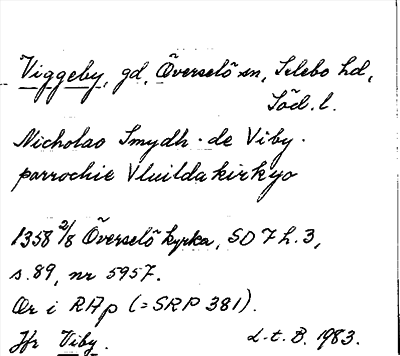 Viggeby, gd, Överselö sn, Selebo hd,
Söd. l.
Nicholao Smydh · de Viby ·
parrochie Vluilda kirkyo
1358 2/8 Överselö kyrka, SD 7 h. 3,
s. 89, nr 5957.
Or i RAp (= SRP 381).
Jfr Viby.
L. t. B. 1983.